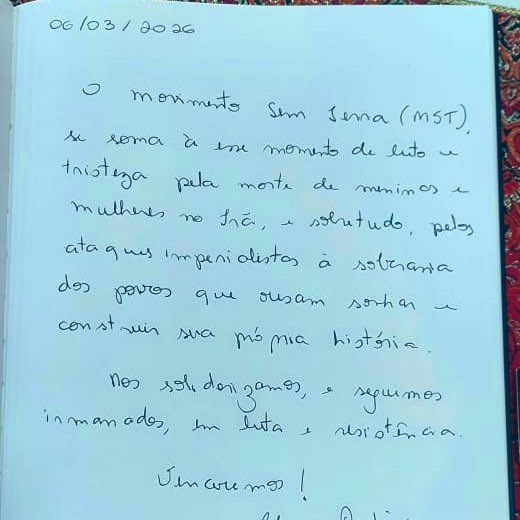 06/03/2026
O movimento Sem Terra (MST),
se soma à esse momento de luto e
tristeza pela morte de meninas e
mulheres no Irã, e sobretudo, pelos
ataques imperialistas à soberania
dos povos que ousam sonhar e
construir sua própria história.
Nos solidarizamos, e seguimos
irmanados, em luta e resistência.
Venceremos!